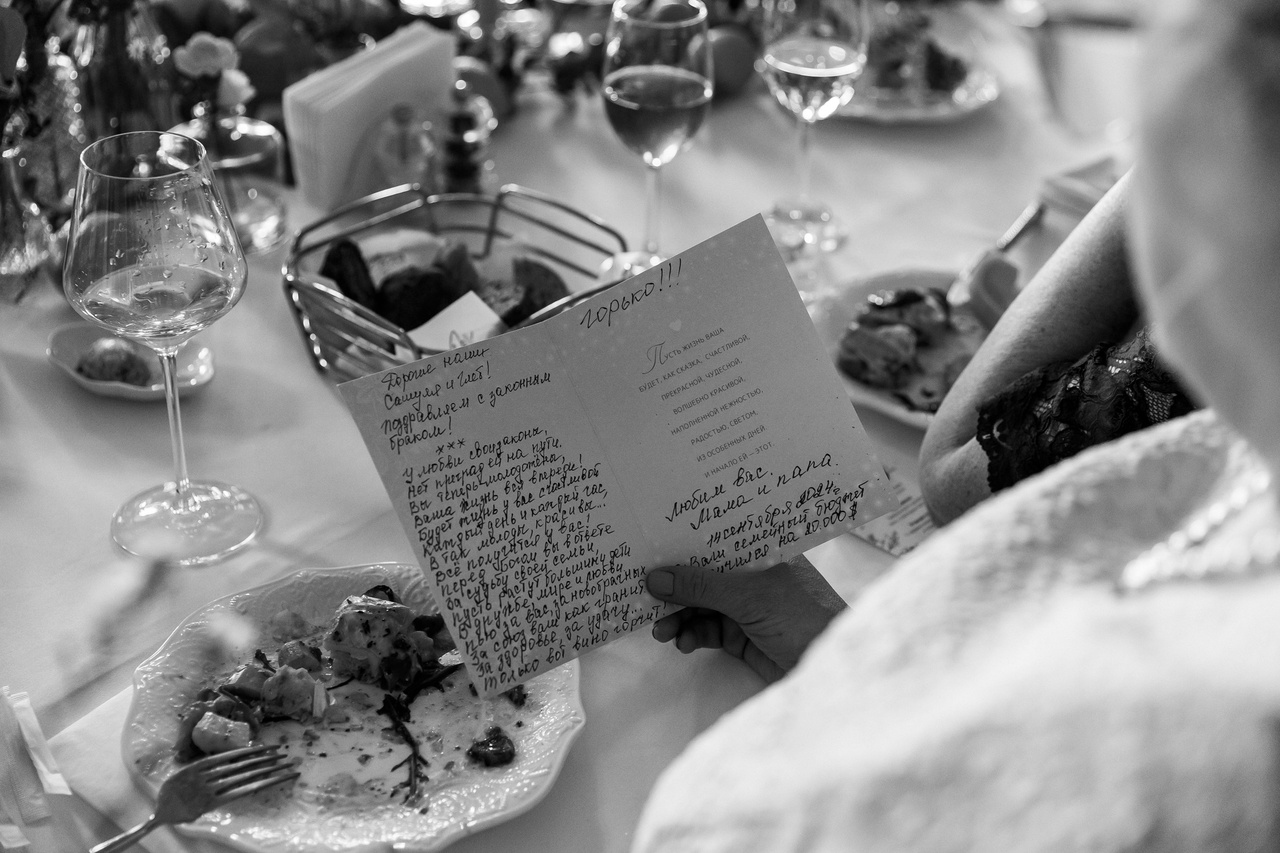 Дорогие наши
Сашуля и Глеб!
поздравляем с законным
браком!
***
У любви свои законы,
Нет преград ей на пути.
Вы теперь молодожёны,
Ваша жизнь вся впереди!
Будет жизнь у вас счастливой
Каждый день и каждый час,
В так молоды, красивы...
Всё получится у вас!
Перед Богом вы в ответе
За судьбу своей семьи,
Пусть растут большими дети
В дружбе, мире и любви
Пью за вас, за новобрачных
За союз ваш как гранит
За здоровье, за удачу...
Только вот вино горчит!
Горько!!!
Пусть жизнь ваша
будет, как сказка, счастливой,
прекрасной, чудесной,
волшебно красивой,
наполненной нежностью,
радостью, светом,
из особенных дней.
И начало ей — этот.
Любим вас.
Мама и папа.
14 сентября 2024г.
Ваш семейный бюджет
на 20.000 $